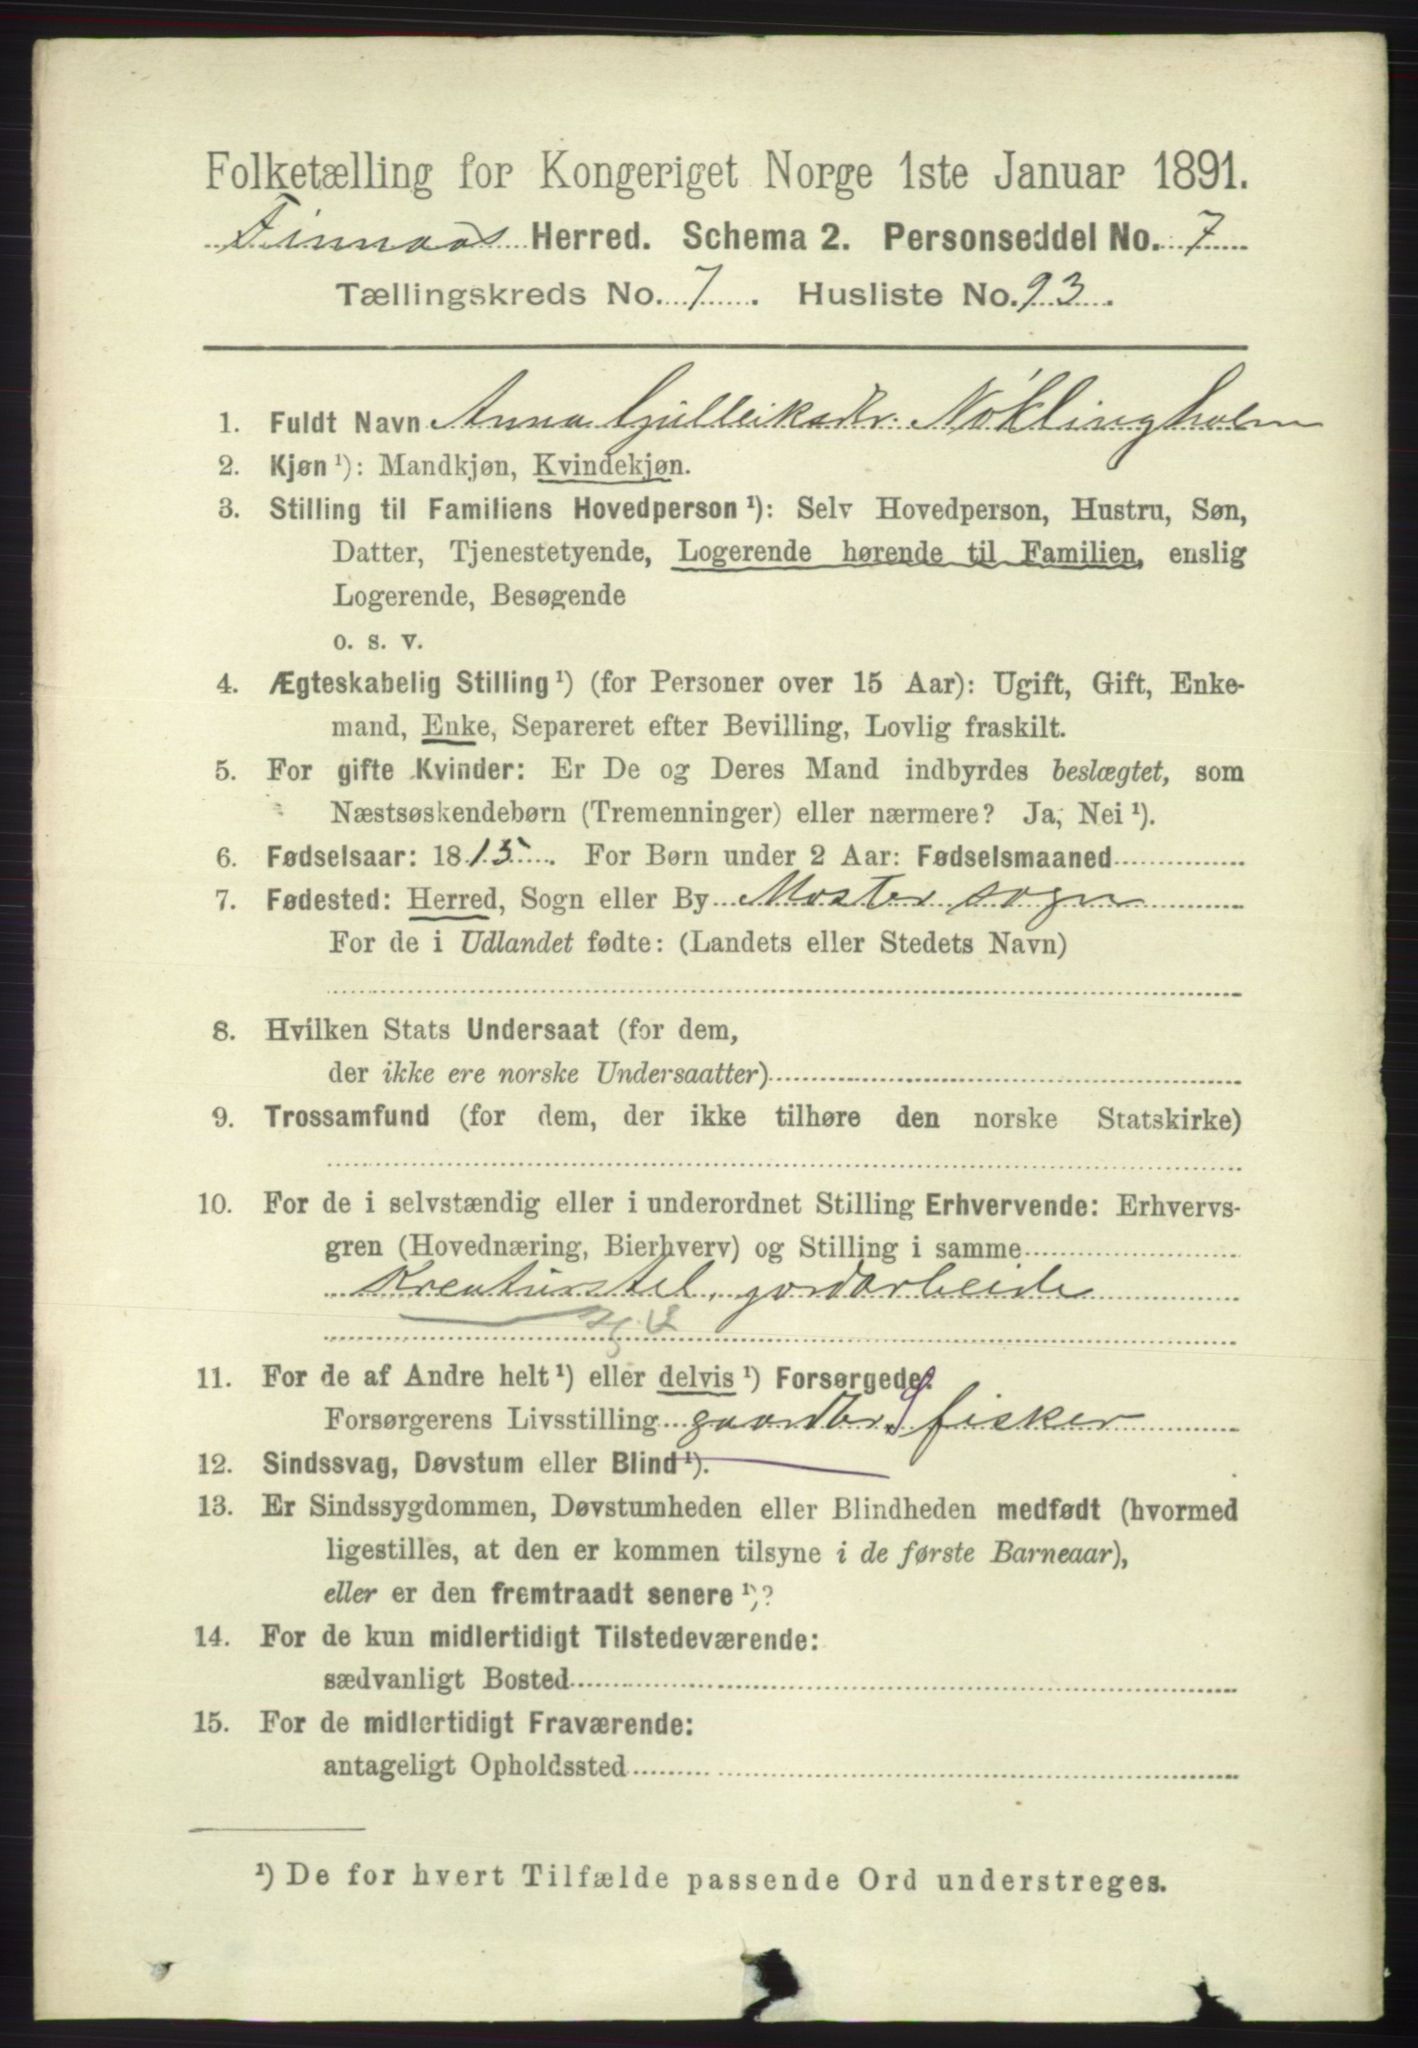 Folketælling for Kongeriget Norge 1ste Januar 1891.
Finnaas Herred. Schema 2. Personseddel No. 7
Tællingskreds No. 7. Husliste No. 93.
1. Fuldt Navn Anna Gjulleiksdtr. Nøklingholm
2. Kjøn ¹): Mandkjøn, Kvindekjøn.
3. Stilling til Familiens Hovedperson ¹): Selv Hovedperson, Hustru, Søn,
Datter, Tjenestetyende, Logerende hørende til Familien, enslig
Logerende, Besøgende
o. s. v.
4. Ægteskabelig Stilling ¹) (for Personer over 15 Aar): Ugift, Gift, Enke-
mand, Enke, Separeret efter Bevilling, Lovlig fraskilt.
5. For gifte Kvinder: Er De og Deres Mand indbyrdes beslægtet, som
Næstsøskendebørn (Tremenninger) eller nærmere? Ja, Nei ¹).
6. Fødselsaar: 1815. For Børn under 2 Aar: Fødselsmaaned
7. Fødested: Herred, Sogn eller By Moster sogn
For de i Udlandet fødte: (Landets eller Stedets Navn)
8. Hvilken Stats Undersaat (for dem,
der ikke ere norske Undersaatter)
9. Trossamfund (for dem, der ikke tilhøre den norske Statskirke)
10. For de i selvstændig eller i underordnet Stilling Erhvervende: Erhvervs-
gren (Hovednæring, Bierhverv) og Stilling i samme
Kreaturstel, jordarbeide
11. For de af Andre helt ¹) eller delvis ¹) Forsørgede:
Forsørgerens Livsstilling gaardbr. fisker
12. Sindssvag, Døvstum eller Blind ¹).
13. Er Sindssygdommen, Døvstumheden eller Blindheden medfødt (hvormed
ligestilles, at den er kommen tilsyne i de første Barneaar),
eller er den fremtraadt senere ¹)?
14. For de kun midlertidigt Tilstedeværende:
sædvanligt Bosted
15. For de midlertidigt Fraværende:
antageligt Opholdssted
¹) De for hvert Tilfælde passende Ord understreges.